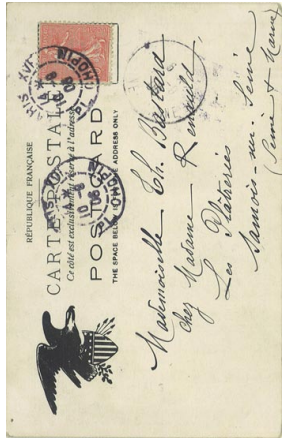 RÉPUBLIQUE FRANÇAISE
CARTE POSTALE
Ce côté est exclusivement réservé à l'adresse
POST CARD
THE SPACE BELOW IS FOR THE ADDRESS ONLY
PARIS XVI
CHOPIN
CHOPIN
Mademoiselle Th. Bastard
chez Madame Renauld
Les Plâtreries
Samois-sur-Seine
(Seine & Marne)